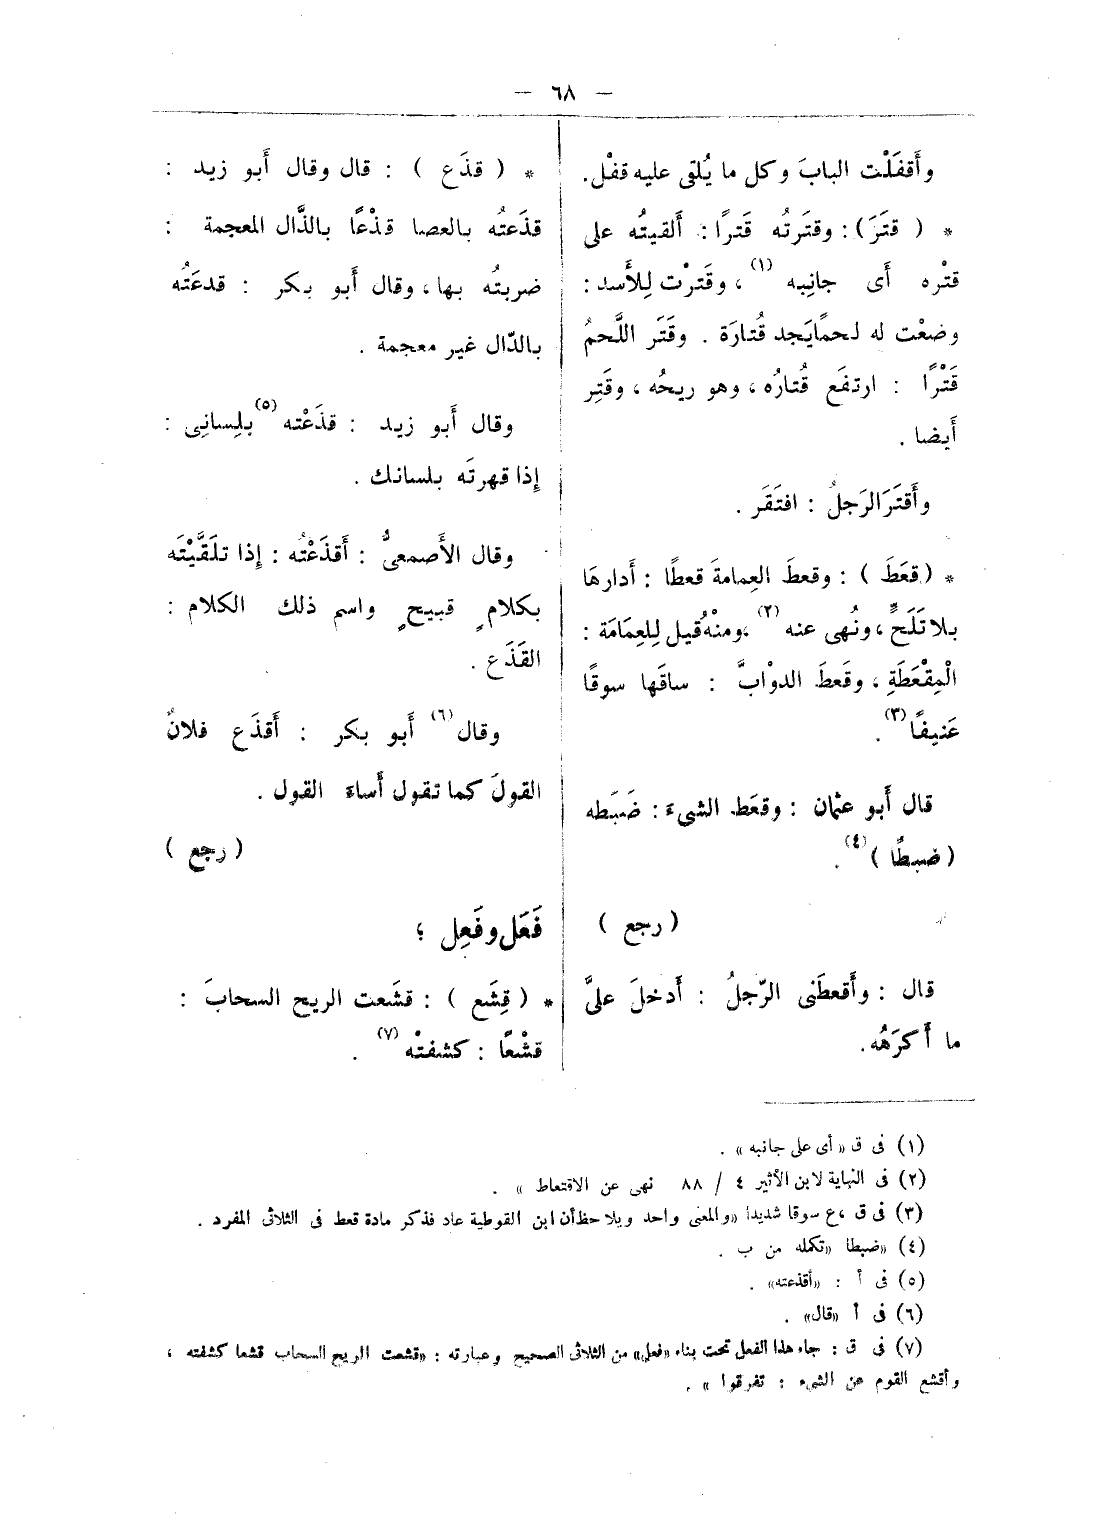 — ٦٨ —
وأَقفَلْت البابَ وكل ما يُلقى عليه قفْل.
* ( قتَرَ ) : وقتَرتُه قَترًا : أَلقيتُه على
قتْره أى جانِبه (١) ، وقَترْت لِلأَسد :
وضعْت له لحمًا يَجد قُتارَة . وقَتَر اللَّحمُ
قَتْرًا : ارتفَع قُتارُه ، وهو ريحُه ، وقَتِر
أَيضا .
وأَقتَرَ الرَجلُ : افتَقَر .
* ( قعَطَ ) : وقعطَ العِمامةَ قعطًا : أَدارهَا
بلا تَلَحٍّ ، ونُهى عنه (٢) ، ومنْهُ قيل لِلعِمَامَة :
الْمِقْعَطَةِ ، وقَعطَ الدوْابَّ : ساقَها سوقًا
عَنيفًا (٣) .
قال أَبو عثمان : وقعَط الشىءَ : ضَبَطه
( ضبطًا ) (٤) .
( رجع )
قال : وأَقعطَنى الرّجلُ : أَدخلَ علىَّ
ما أَكرَهُه .
* ( قذَع ) : قال وقال أَبو زيد :
قذَعتُه بالعصا قذْعًا بالذَّال المعجمة :
ضربتُه بها ، وقال أَبو بكر : قدعَتُه
بالدّال غير معجمة .
وقال أَبو زيد : قذَعْته (٥) بلِسانِى :
إِذا قهرتَه بلسانك .
وقال الأَصمعىُّ : أَقذَعْتُه : إِذا تلَقَّيْتَه
بكلامٍ قبيحٍ واسم ذلك الكلام :
القَذَع .
وقال (٦) أَبو بكر : أَقذَع فلانٌ
القولَ كما تقول أَساءَ القول .
( رجع )
فَعَل وفَعِل ؛
* ( قِشَع ) : قشَعت الريح السحابَ :
قشْعًا : كشفتْه (٧) .
(١) فى ق «أى على جانبه» .
(٢) فى النهاية لابن الأثير ٤ / ٨٨ نهى عن الاقتعاط » .
(٣) فى ق ، ع سوقا شديدا «والمعنى واحد ويلاحظ أن ابن القوطية عاد فذكر مادة قعط فى الثلاثى المفرد .
(٤) «ضبطا «تكمله من ب .
(٥) فى أ : «أقذعته» .
(٦) فى أ «قال» .
(٧) فى ق : جاء هذا الفعل تحت بناء «فعل» من الثلاثى الصحيح وعبارته : «قشعت الريح السحاب قشعا كشفته ،
وأقشع القوم عن الشىء : تفرقوا » .